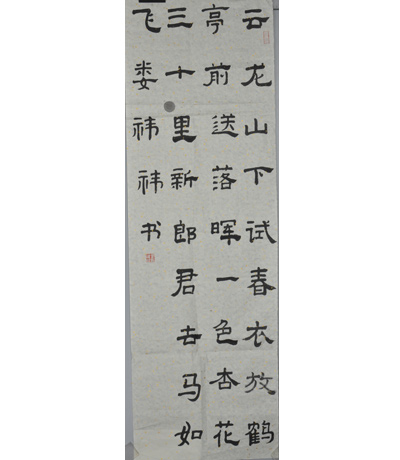 云龙山下试春衣放鹤
亭前送落晖一色杏花
三十里新郎君去马如
飞娄祎祎书